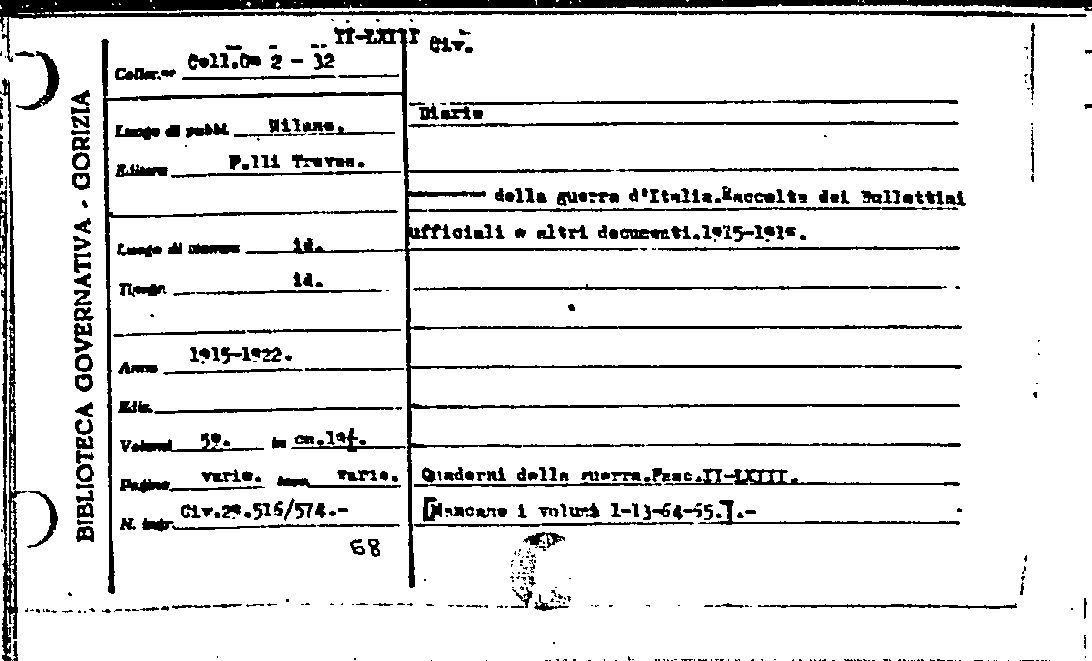 II-LXIII Civ.
Colloc.ne Coll.Om 2 - 32
Diario
Luogo di pubbl. Milano.
Editore F.lli Treves.
della guerra d'Italia.Raccolta dei Bullettini
ufficiali e altri documenti.1915-191
Luogo di stampa id.
Tipogr. id.
Anno 1915-1922.
Ediz.
Volumi 59. in cm.19½.
Pagine varie. tavv. varie. Quaderni della guerra.Fasc.II-LXIII.
N. ingr. Civ.29.516/574.- [Mancano i volumi 1-13-64-65.].-
68
BIBLIOTECA GOVERNATIVA - GORIZIA